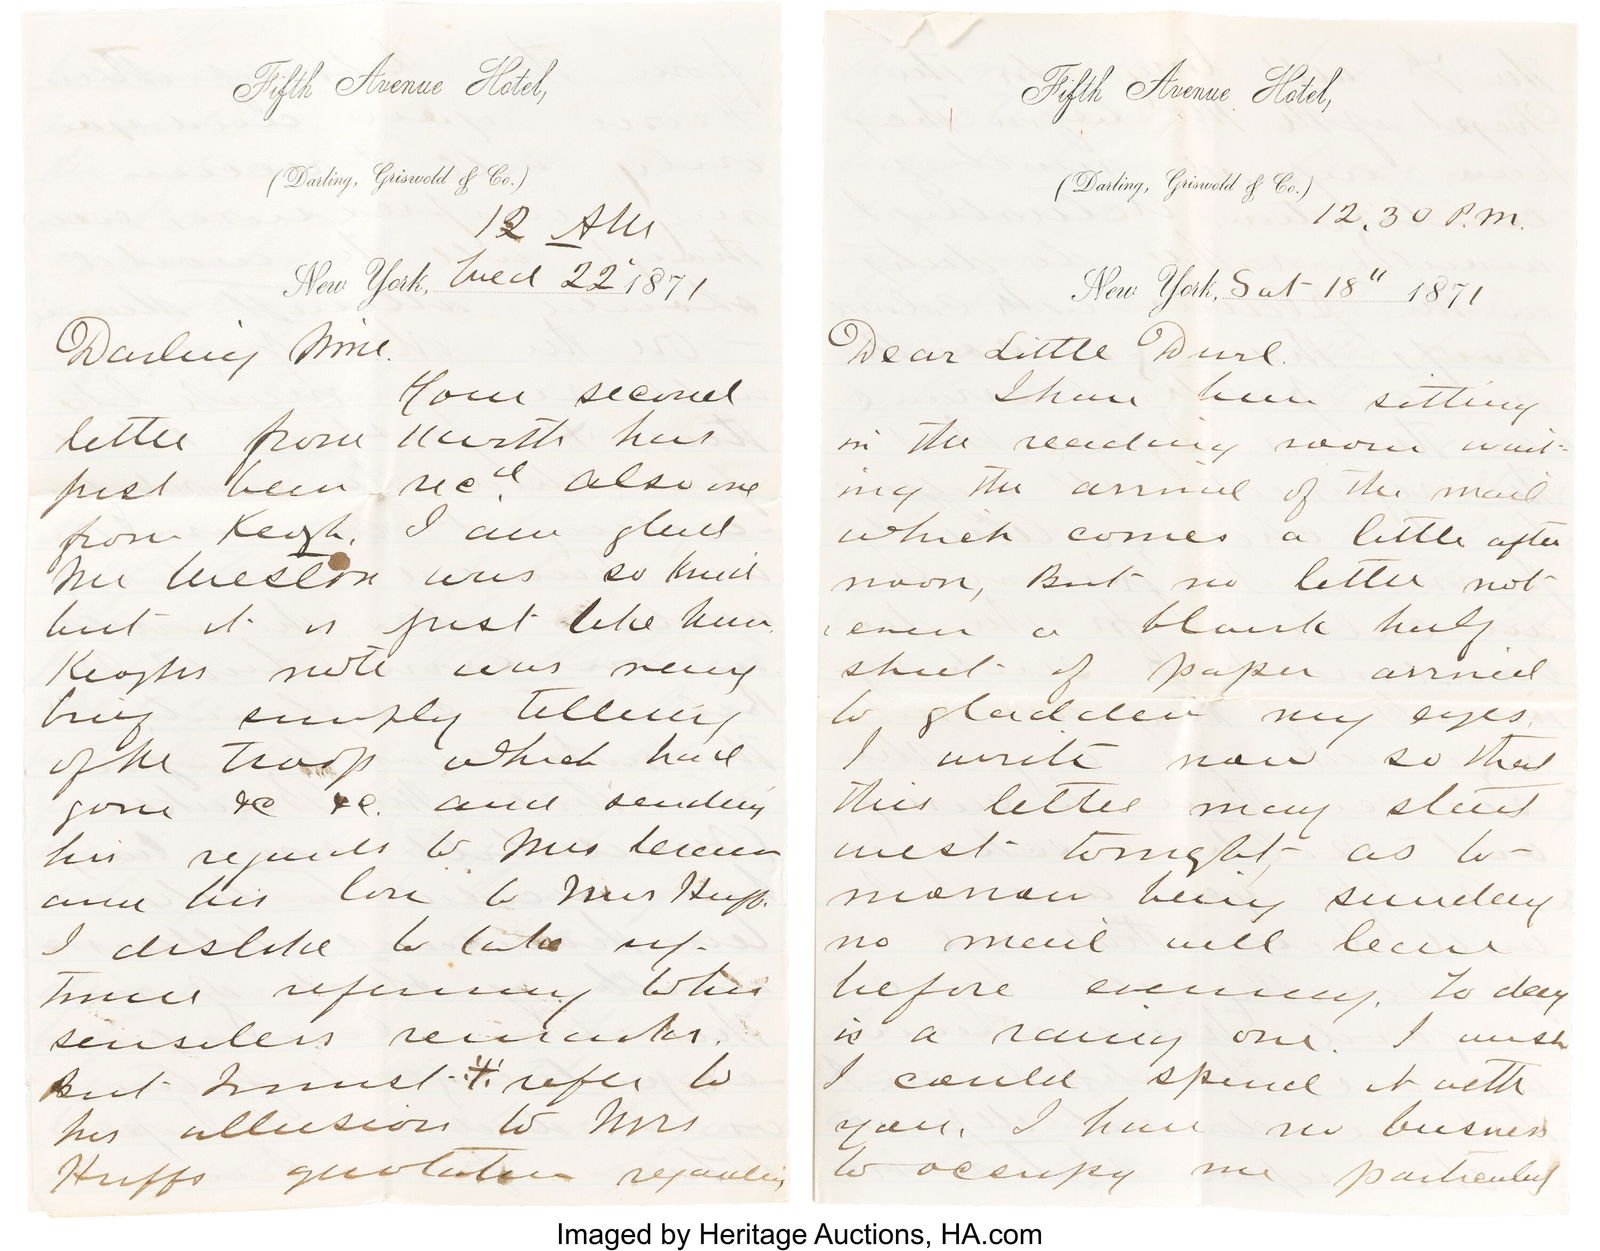 Fifth Avenue Hotel,
(Darling, Griswold & Co.)
12 AM
New York, Wed 22" 1871
Darling Mine.
Your second
letter from North has
just been rec'd. also one
from Keogh. I am glad
Mr Weston was so kind
but it is just like him.
Keoghs note was very
brief simply telling
of the troop which had
gone &c &c. and sending
his regards to Mrs
and his love to Mrs Huff.
I dislike to take
referring to his
senseless remarks.
But I must refer to
his allusion to Mrs
Huffs quotation regarding
Fifth Avenue Hotel,
(Darling, Griswold & Co.)
12.30 P.M.
New York, Sat 18" 1871
Dear Little Durl.
I have been sitting
in the reading room wait-
ing the arrival of the mail
which comes a little after
noon, But no letter not
even a blank half
sheet of paper arrived
to gladden my eyes.
I write now so that
this letter may start
west tonight, as to-
morrow being sunday
no mail will leave
before evening. To day
is a rainy one. I wish
I could spend it with
you. I have no business
to occupy me particularly
Imaged by Heritage Auctions, HA.com